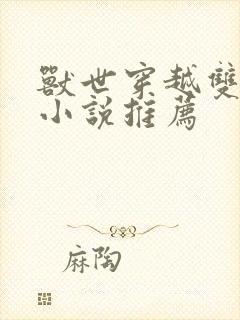 獸世穿越雙
小說推薦
麻陶